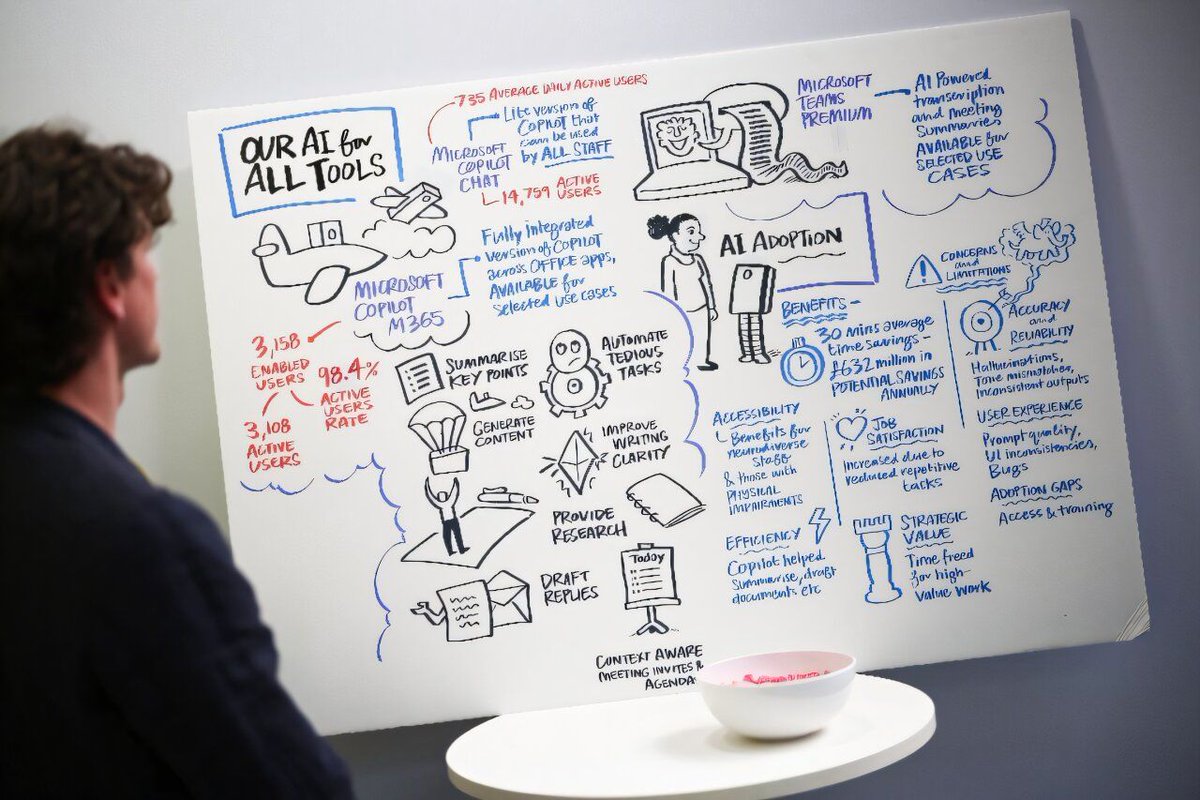 OUR AI for
ALL TOOLS
735 AVERAGE DAILY ACTIVE USERS
MICROSOFT
COPILOT
CHAT
Lite version of
COPILOT that
can be used
by ALL STAFF
14,759 ACTIVE
USERS
MICROSOFT
COPILOT
M365
Fully integrated
version of COPILOT
across OFFICE apps,
AVAILABLE for
selected use cases
3,158
ENABLED
USERS
98.4%
ACTIVE
USERS
RATE
3,108
ACTIVE
USERS
SUMMARISE
KEY POINTS
AUTOMATE
TEDIOUS
TASKS
GENERATE
CONTENT
IMPROVE
WRITING
CLARITY
PROVIDE
RESEARCH
DRAFT
REPLIES
Today
CONTEXT AWARE
MEETING INVITES &
AGENDA
MICROSOFT
TEAMS
PREMIUM
AI Powered
transcription
and meeting
summaries
AVAILABLE for
SELECTED USE
CASES
AI ADOPTION
BENEFITS -
30 mins average
time savings -
£632 million in
POTENTIAL SAVINGS
ANNUALLY
ACCESSIBILITY
Benefits for
neurodiverse
staff
& those with
PHYSICAL
IMPAIRMENTS
JOB
SATISFACTION
Increased due to
reduced repetitive
tasks
EFFICIENCY
Copilot helped
summarise, draft
documents etc
STRATEGIC
VALUE
Time freed
for high-
value work
CONCERNS
and
LIMITATIONS
ACCURACY
and
RELIABILITY
Hallucinations,
Tone mismatches,
inconsistent outputs
USER EXPERIENCE
Prompt quality,
UI inconsistencies,
Bugs
ADOPTION GAPS
Access & training